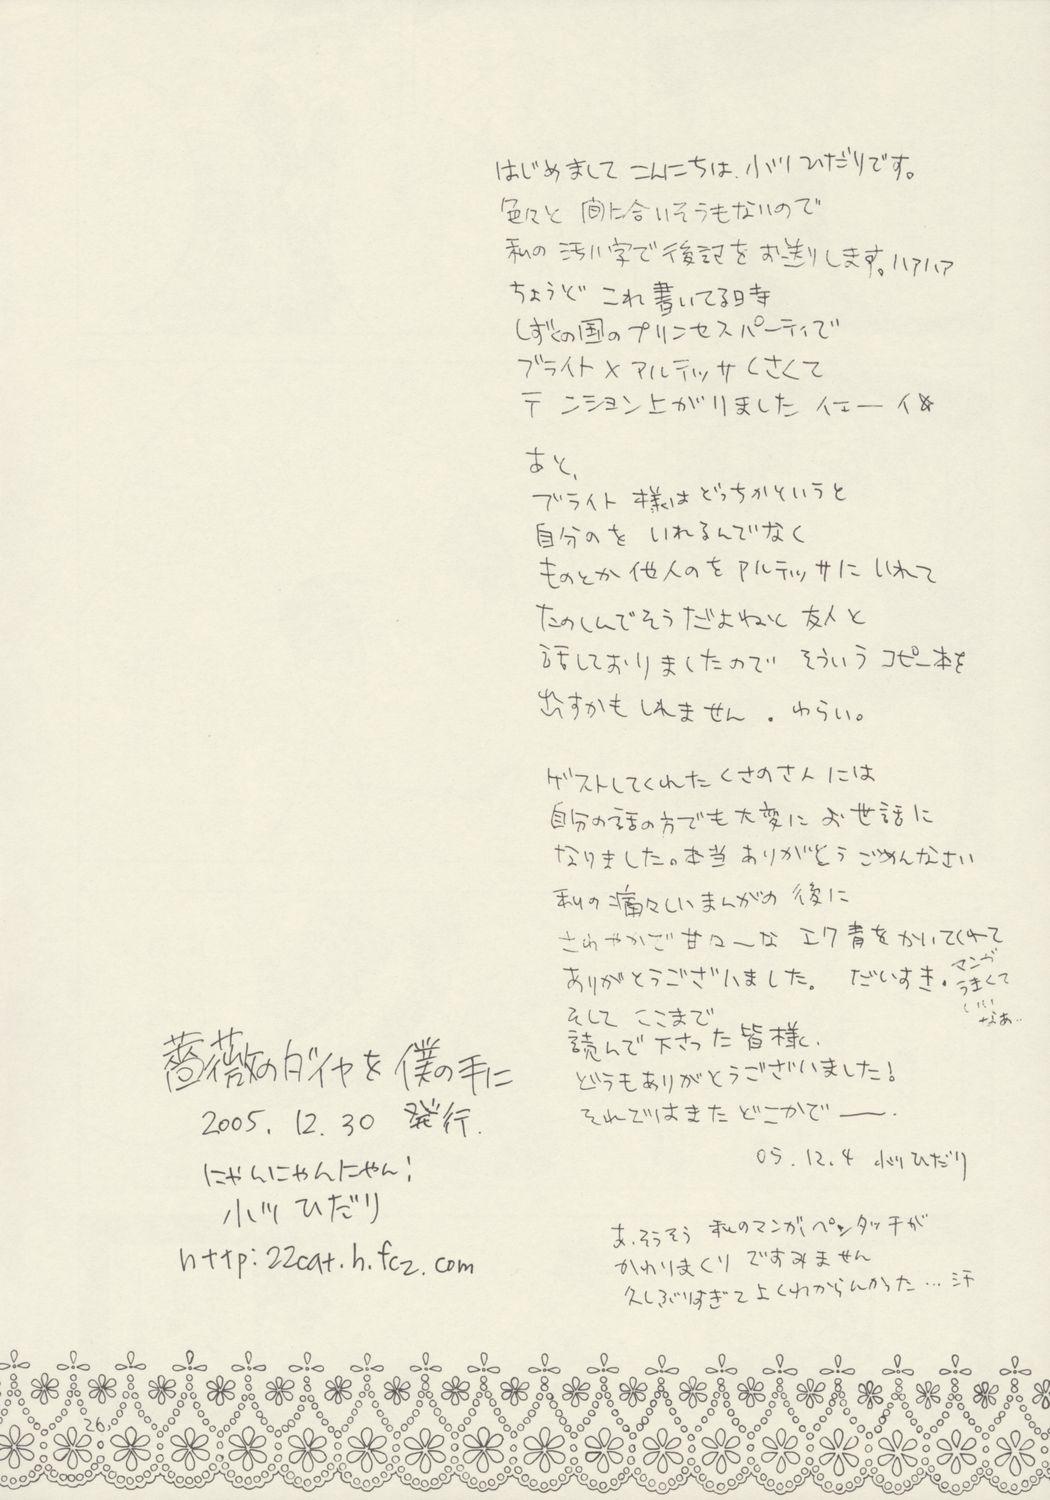 はじめまして こんにちは、小川ひだりです。
色々と 間に合いそうもないので
私の 汚い字で後記をお送りします。ハァハァ
ちょうど これ書いてる時
しずくの国のプリンセスパーティで
ブライト×アルテッサくさくて
テンション上がりました イェーイ☆
あと、
ブライト様はどっちかというと
自分のを いれるんでなく
ものとか他人のをアルテッサにいれて
たのしんでそうだよねと 友人と
話しておりましたので そういうコピー本を
出すかもしれません。わらい。
ゲストしてくれた くさのさんには
自分の話の方でも大変にお世話に
なりました。本当ありがとう ごめんなさい
私の痛々しいまんがの 後に
さわやかで甘々〜な エク青をかいてくれて
ありがとうございました。 だいすき。
マンガ
うまくて
いい
なあ..
そして ここまで
読んで下さった皆様、
どうもありがとうございました!
それではまた どこかで――.
05.12.4 小川ひだり
あ、そうそう 私のマンガ、ペンタッチが
かわりまくり ですみません
久しぶりすぎてよくわからんかった…汗
薔薇のダイヤを僕の手に
2005.12.30 発行.
にゃんにゃんにゃん!
小川ひだり
http:22cat.h.fc2.com
26